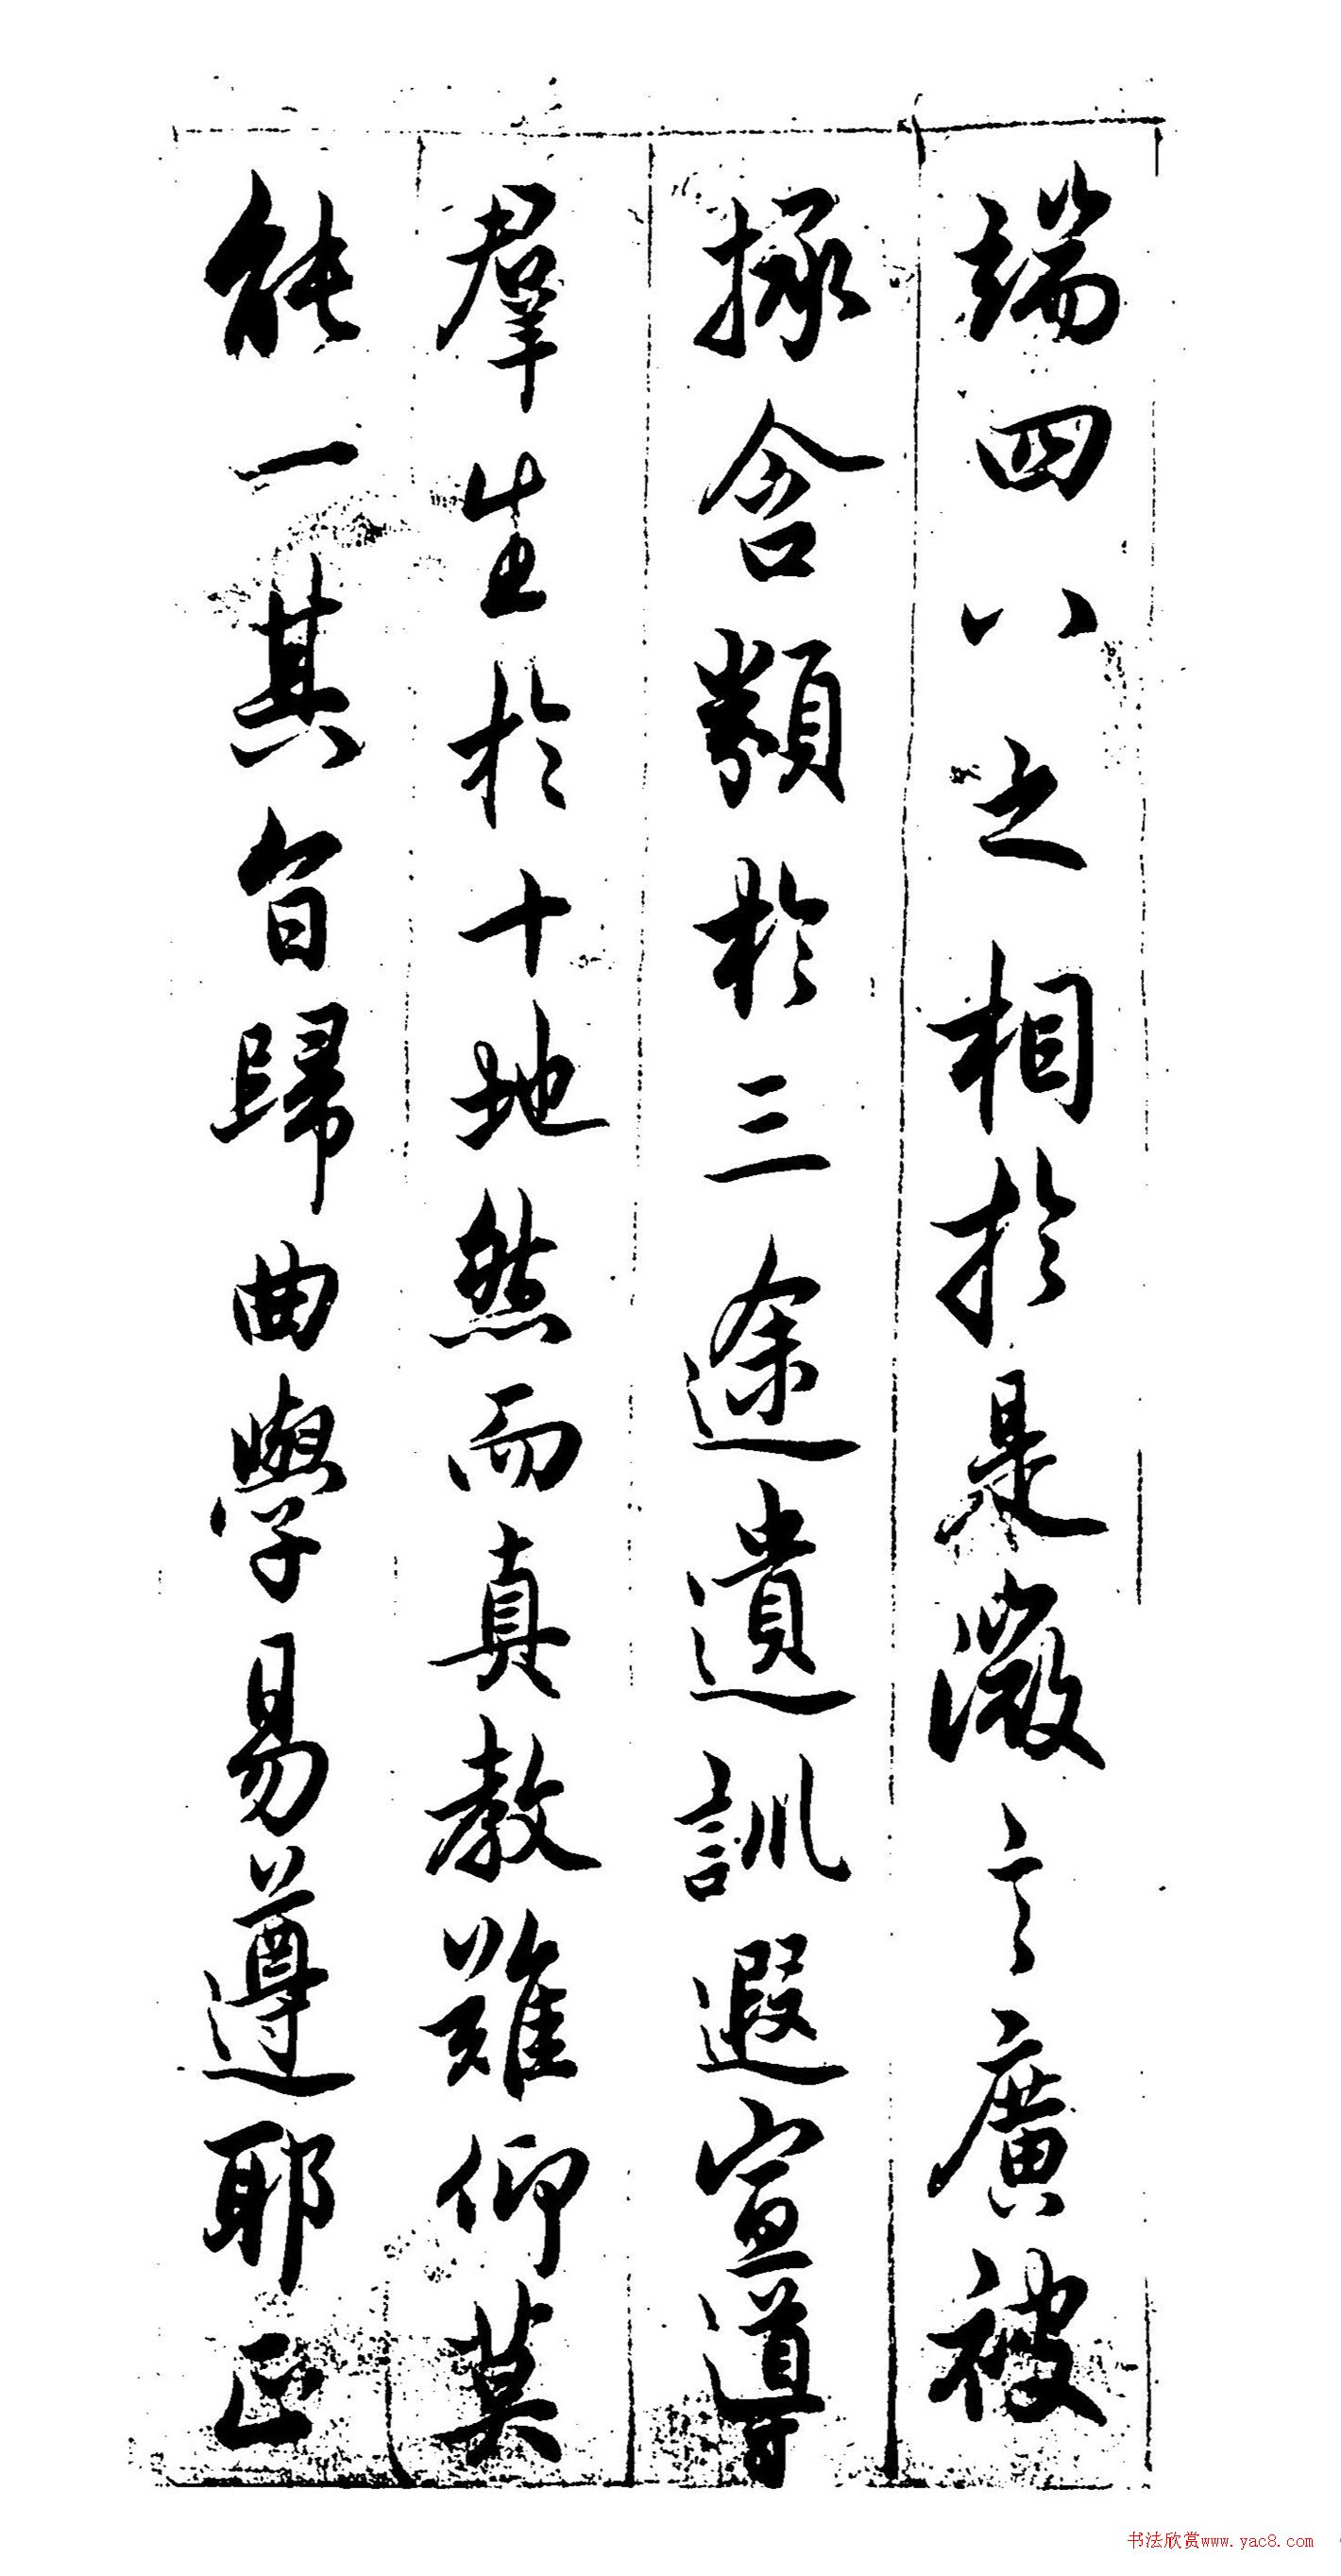 端四八之相於是微言廣被
拯含類於三途遺訓遐宣導
羣生於十地然而真教難仰莫
能一其旨歸曲學易遵耶正
书法欣赏www.yac8.com